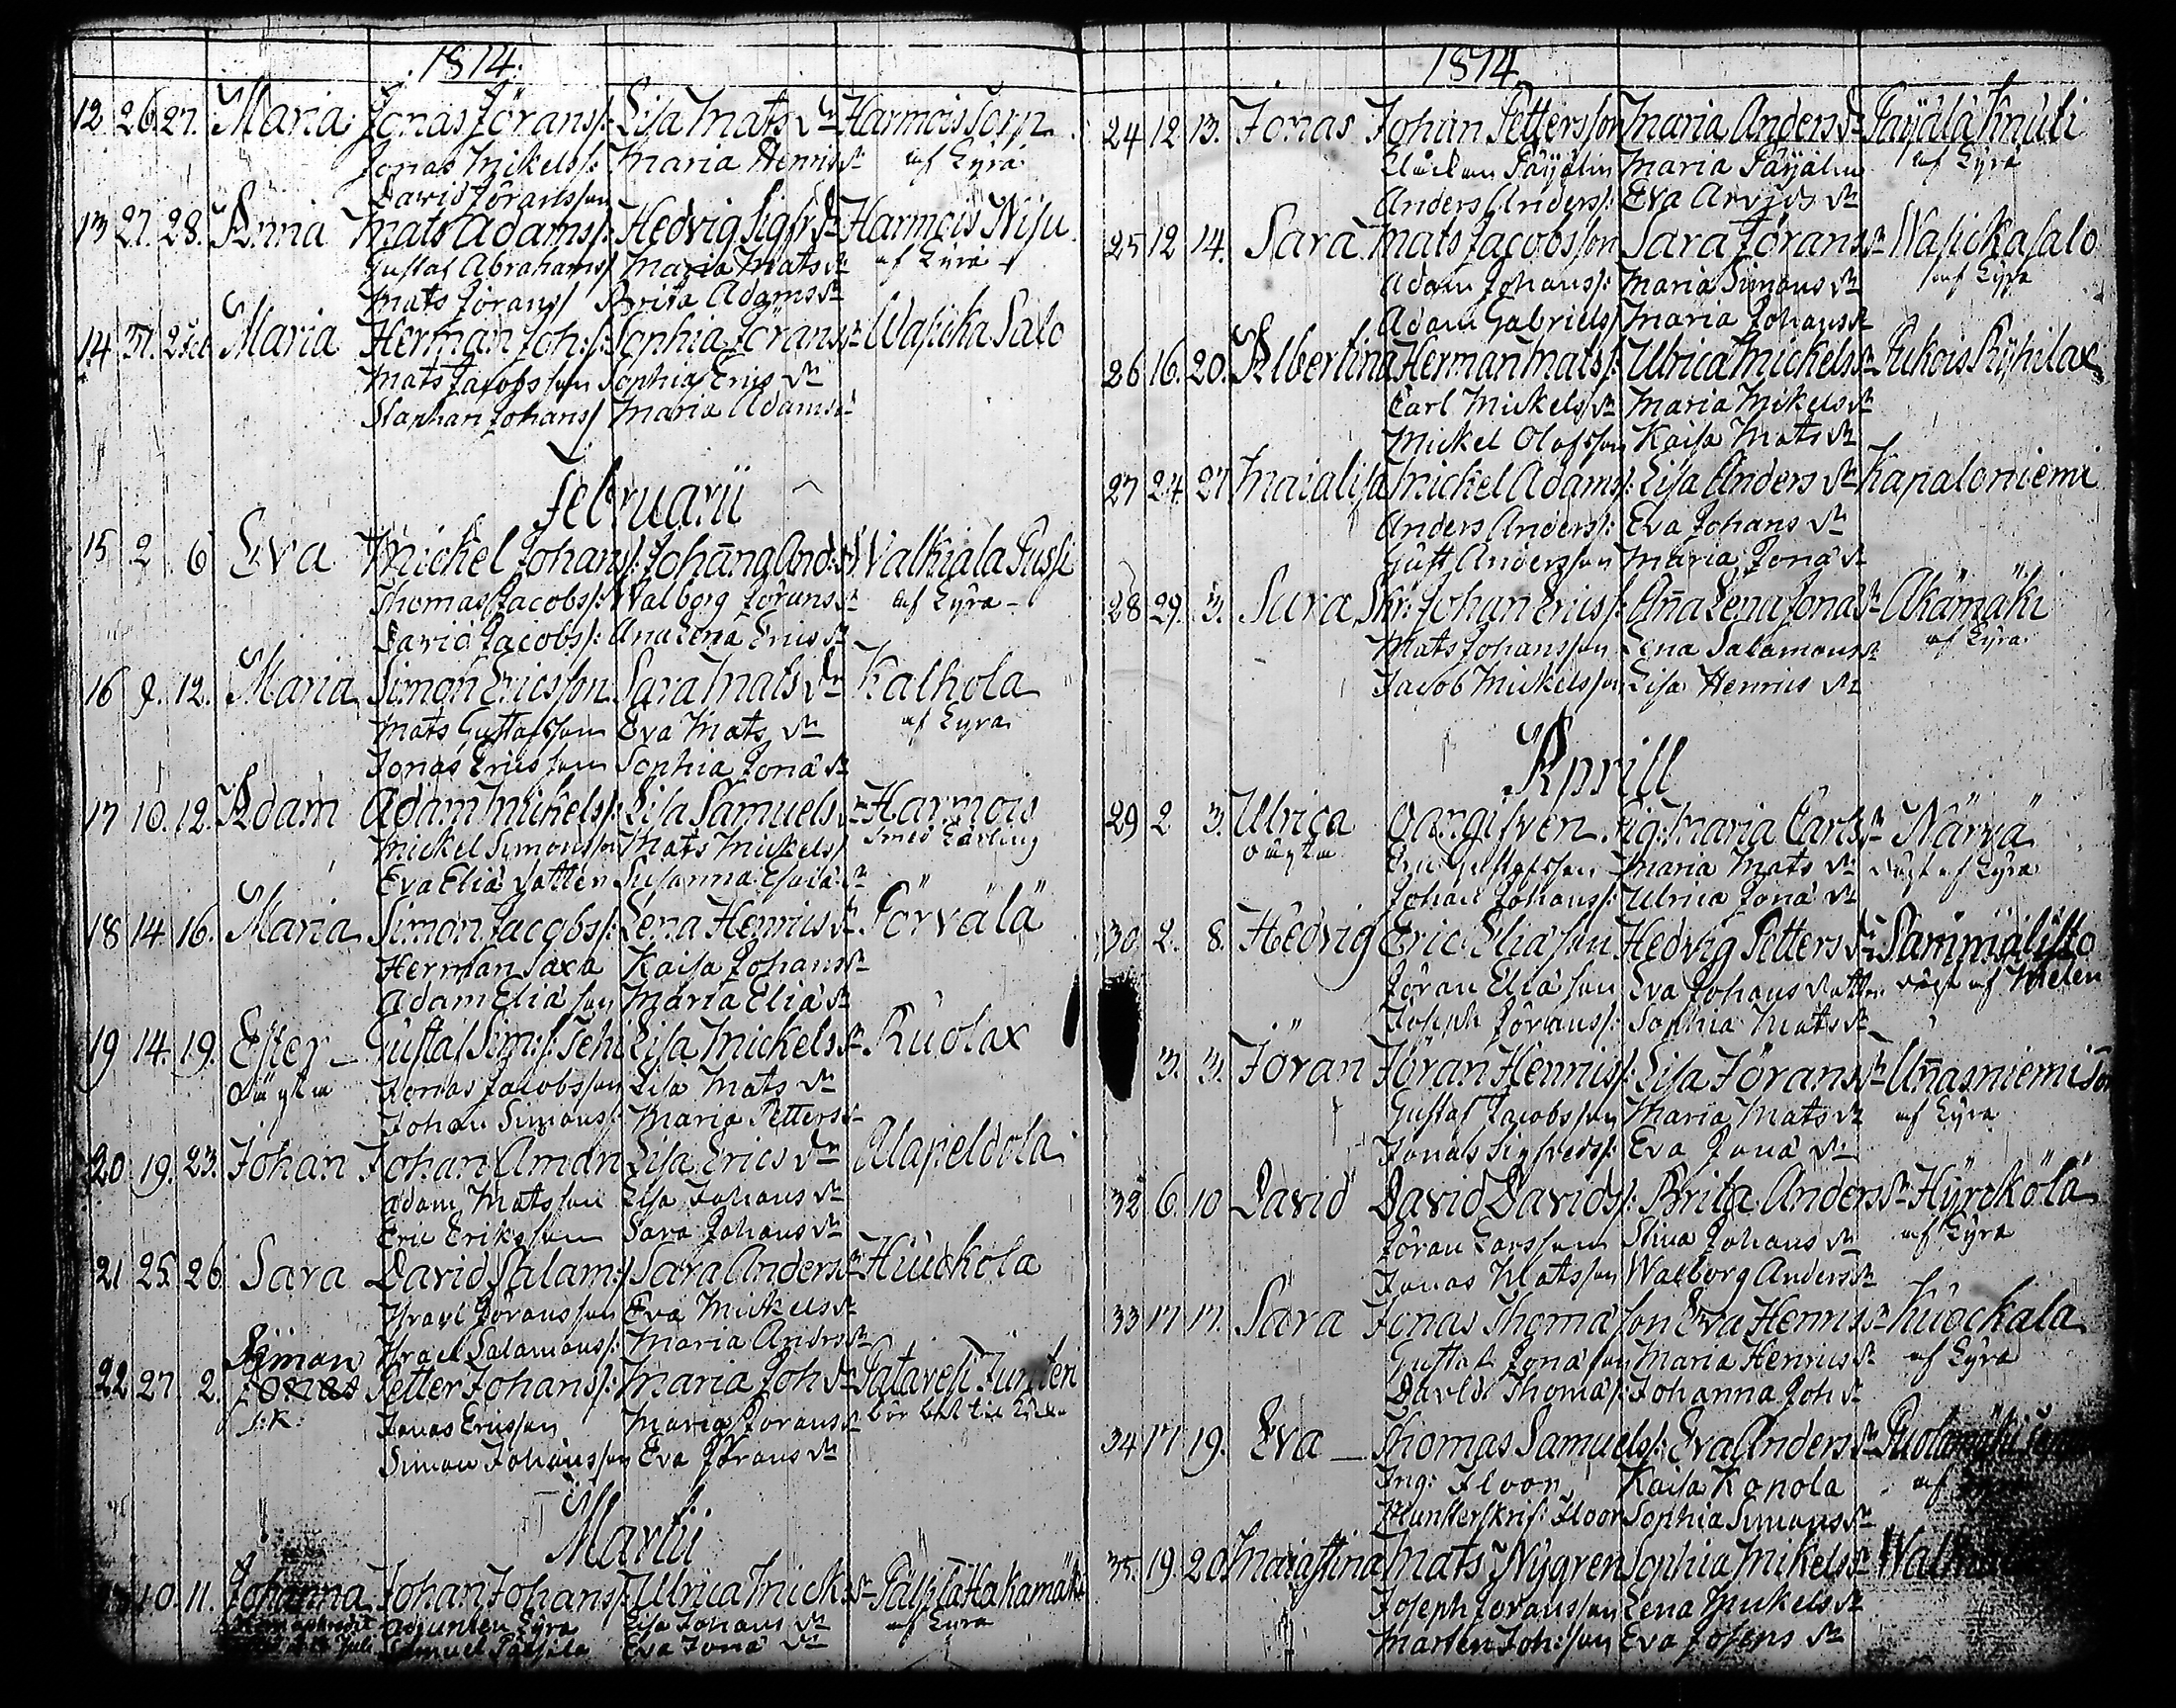 1814.
12 26 27. Maria Jonas Jörans/: Lisa Mats dr Harmois Torp
Jonas Mikels/: Maria Henrics dr af Lyra
David Jöransson
13 27. 28. Anna Mats Adams/: Hedvig Sigfr dr Harmois Nisu
Gustaf Abrahams/ Maria Mats dr af Lyra
Mats Jörans/ Brita Adams dr
14 31. 2 Maria Herman Joh:/: Sophia Jörans dr Wasicka Salo
Mats Jacobsson Sophia Erics dr
Staphan Johans/ Maria Adams dr
Februarii
15 2 6 Eva Mickel Johans/: Johanna And: Valkiala Pussi
Thomas Jacobs/: Walborg Jörans dr af Lyra
David Jacobs/: Ana Lena Erics dr
16 9. 12. Maria Simon Ericsson Sara Mats dr Kalhola
Mats Gustafsson Eva Mats dr af Lyra
Jonas Ericsson Sophia Jona dr
17 10. 12. Adam Adam Mickels/: Lisa Samuels dr Harmois
Mickel Simonsson Mats Mickels/
Eva Elia dotter Susanna Esaia dr
18 14. 16. Maria Simon Jacobs/: Lena Henrics dr Pörvälä
Herman Saxa Kaisa Johans dr
Adam Elia son Maria Elia dr
19 14. 19. Ester Gustaf Sim:/: Lisa Mickels dr Ruolax
oäkta Jonas Jacobsson Lisa Mats dr
Johan Simons/: Maria Petters dr
20 19. 23. Johan Johan Aman Lisa Erics dr Alapeldola
Adam Matsson Lisa Johans dr
Eric Eriksson Sara Johans dr
21 25. 26 Sara David Salam:/ Sara Anders dr Hiuckola
Israel Jöransson Eva Mickels dr
Simon Israel Salamons/: Maria Andrs dr
22 27 2. Jonas Petter Johans/: Maria Joh dr Patavesi Junteri
Jonas Ericsson Maria Jörans dr
Simon Johansson Eva Jörans dr
Martii
10. 11. Johanna Johan Johans/: Ulrica Mick dr Pälsilä Hakamäki
Adjuncten Lyra Lisa Johans dr af Lyra
Samuel Eva Jona dr
1814
24 12 13. Jonas Johan Pettersson Maria Anders dr Päijälä Knuti
Päijälin Maria Päijälin af Lyra
Anders Anders/: Eva Arvids dr
25 12 14. Sara Mats Jacobsson Sara Jörans dr Wasickasalo
Adam Johans/: Maria Simons dr af Lyra
Adam Gabriels/ Maria Johans dr
26 16. 20. Albertina Herman Mats/: Ulrica Mickels dr Pukois Ryhilax
Carl Mickels/ Maria Mikels dr
Mickel Olofsson Kaisa Mats dr
27 24. 27 Maialisa Mickel Adams/: Lisa Anders dr Kapaloniemi
Anders Anders/: Eva Johans dr
Gust Andersson Maria Jona dr
28 29. 3. Sara Johan Erics/: Aña Lena Jona dr Akämäki
Mats Johansson Lena Salamons dr af Lyra
Jacob Mickelsson Lisa Henrics dr
Aprill
29 2 3. Ulrica Oangifven Pig: Maria Carls dr Närvä
oäkta Eric Gustafsson Maria Mats dr döpt af Lyra
Johan Johans/: Ulrica Jona dr
30. 2. 8. Hedvig Eric Elia son Hedvig Petters dr Sammälisto
Jöran Elia son Eva Johans dotter döpt af Melen
Joseph Jörans/: Sophia Mats dr
3. 3. Jöran Jöran Henrics/: Lisa Jörans dr Uñasniemi
Gustaf Jacobsson Maria Mats dr af Lyra
Jonas Sigfreds/: Eva Jona dr
32 6. 10 David David Davids/: Brita Anders dr Hyrckölä
Jöran Larsson Stina Johans dr af Lyra
Jonas Matsson Walborg Anders dr
33 17 17. Sara Jonas Thoma son Eva Henrics dr Kuockala
Gustaf Jona son Maria Henrics dr af Lyra
David Thoma/: Johanna Joh dr
34 17 19. Eva Thomas Samuels/: Eva Anders dr
Ing: Floor Kaisa Konola af
Munsterskrif: Floor Sophia Simons dr
35. 19. 20 Maiastina Mats Nygren Sophia Mikels dr
Joseph Jöransson Lena Mickels dr
Marten Joh:son Eva Josephs dr